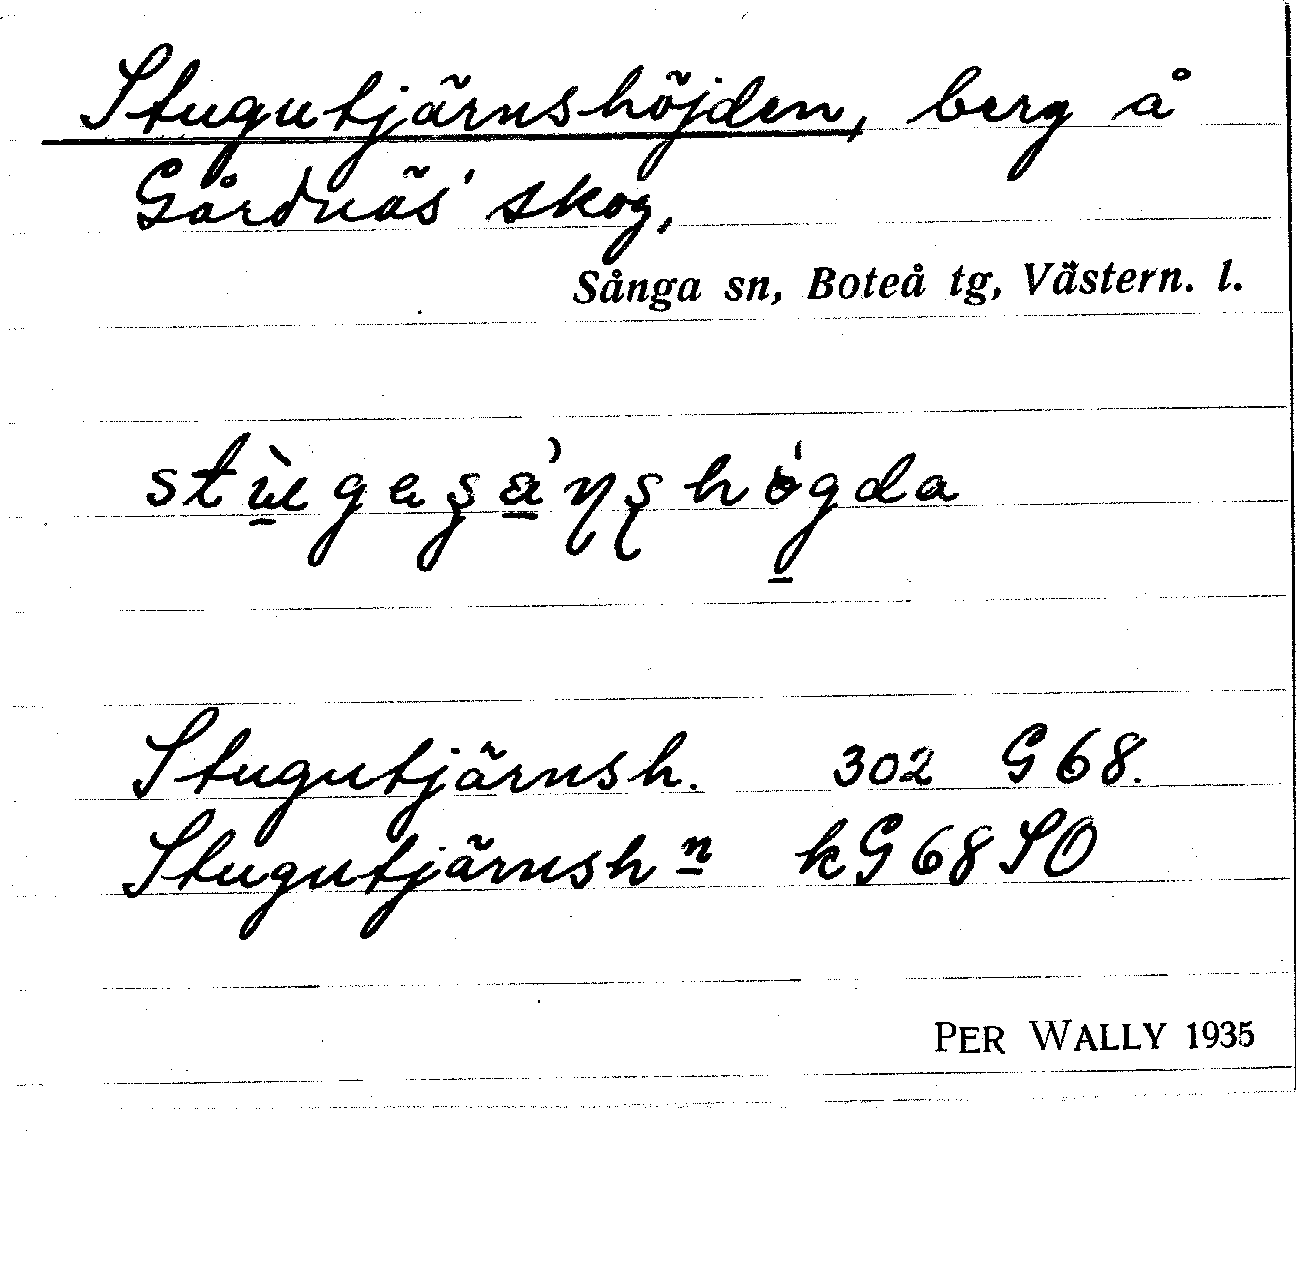 Stugutjärnshöjden, berg å
Gårdnäs' skog,
Sånga sn, Boteå tg, Västern. l.
Stugutjärnsh. 302 G68.
Stugutjärnshn kG68SO
PER WALLY 1935